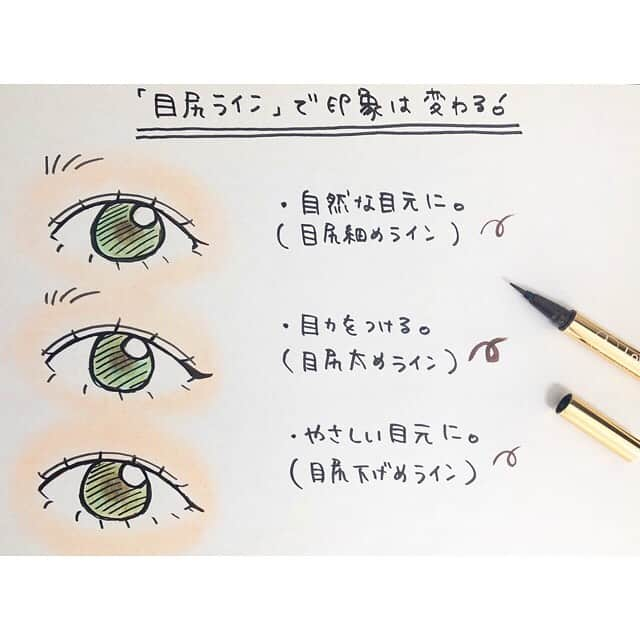 「目尻ライン」で印象は変わる!
・自然な目元に。
(目尻細めライン)
・目力をつける。
(目尻太めライン)
・やさしい目元に。
(目尻下げめライン)